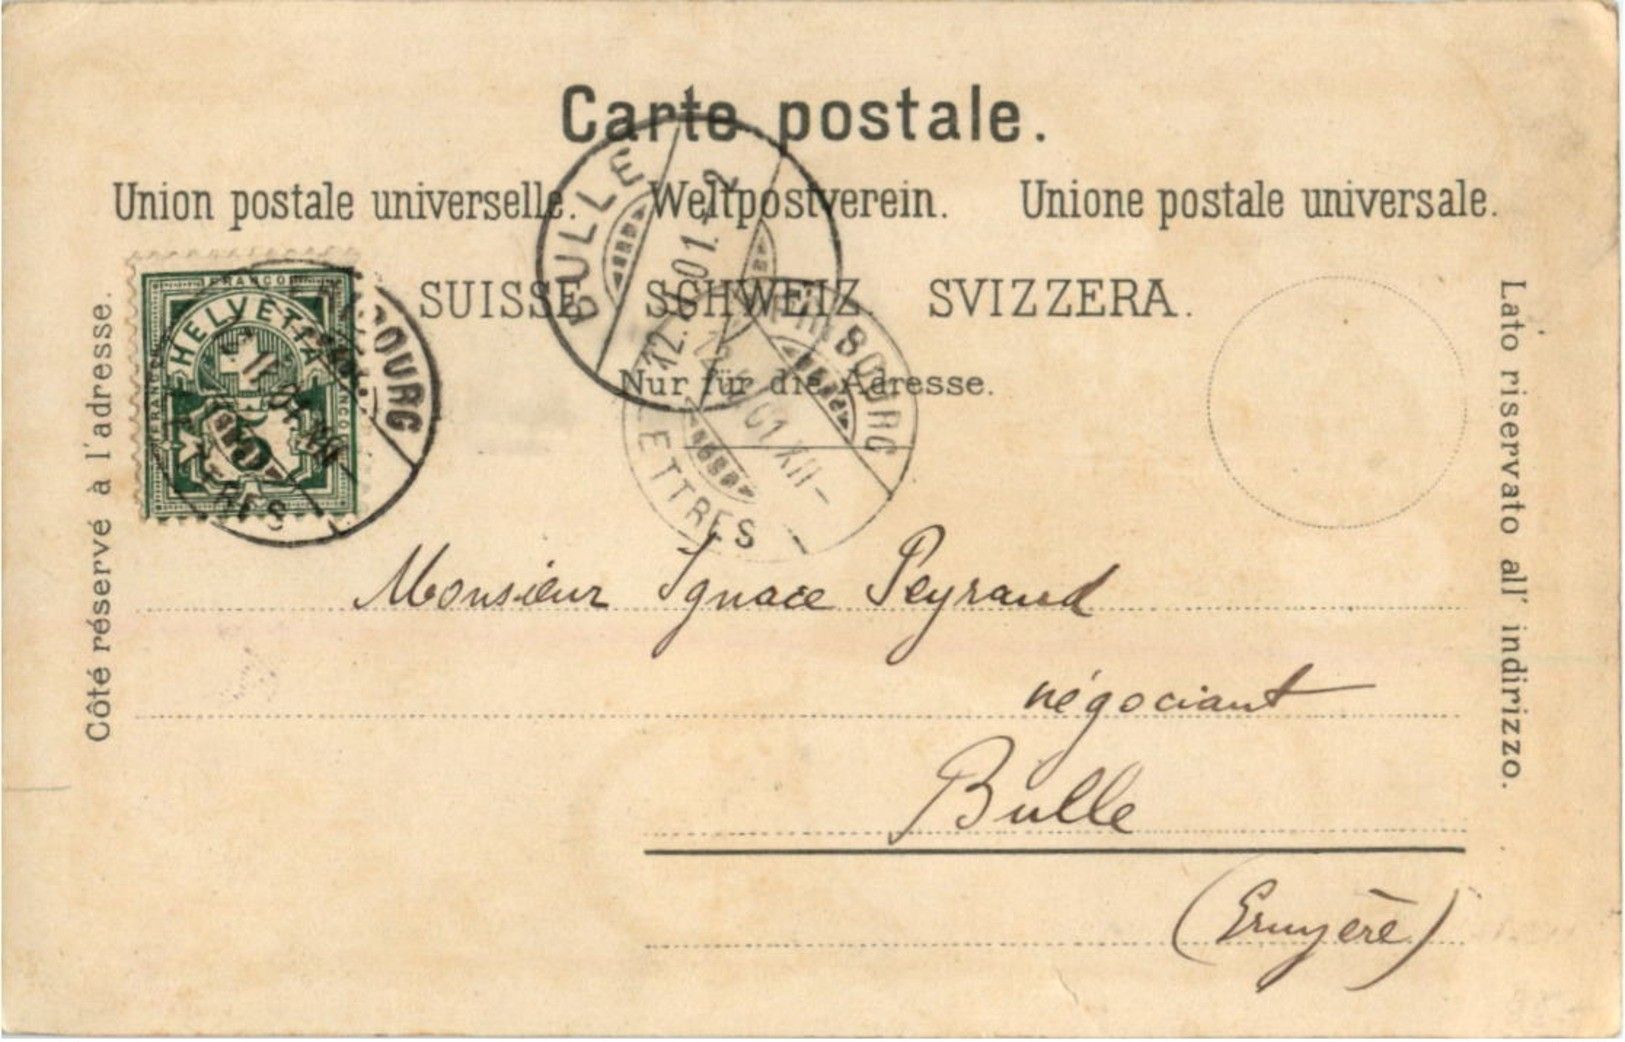 Carte postale.
Union postale universelle. Weltpostverein. Unione postale universale.
SUISSE SCHWEIZ. SVIZZERA.
Nur für die Adresse.
Côté réservé à l'adresse.
Lato riservato all' indirizzo.
FRANCO
HELVETIA
FRANCO
FRANCO
5
BULLE
FRIBOURG
LETTRES
Monsieur Ignace Peyraud
négociant
Bulle
(Gruyère)